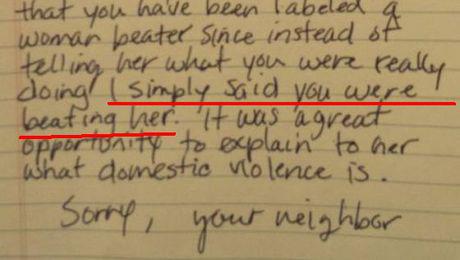 that you have been labeled a
woman beater since instead of
telling her what you were really
doing I simply said you were
beating her. It was a great
opportunity to explain to her
what domestic violence is.
Sorry, your neighbor